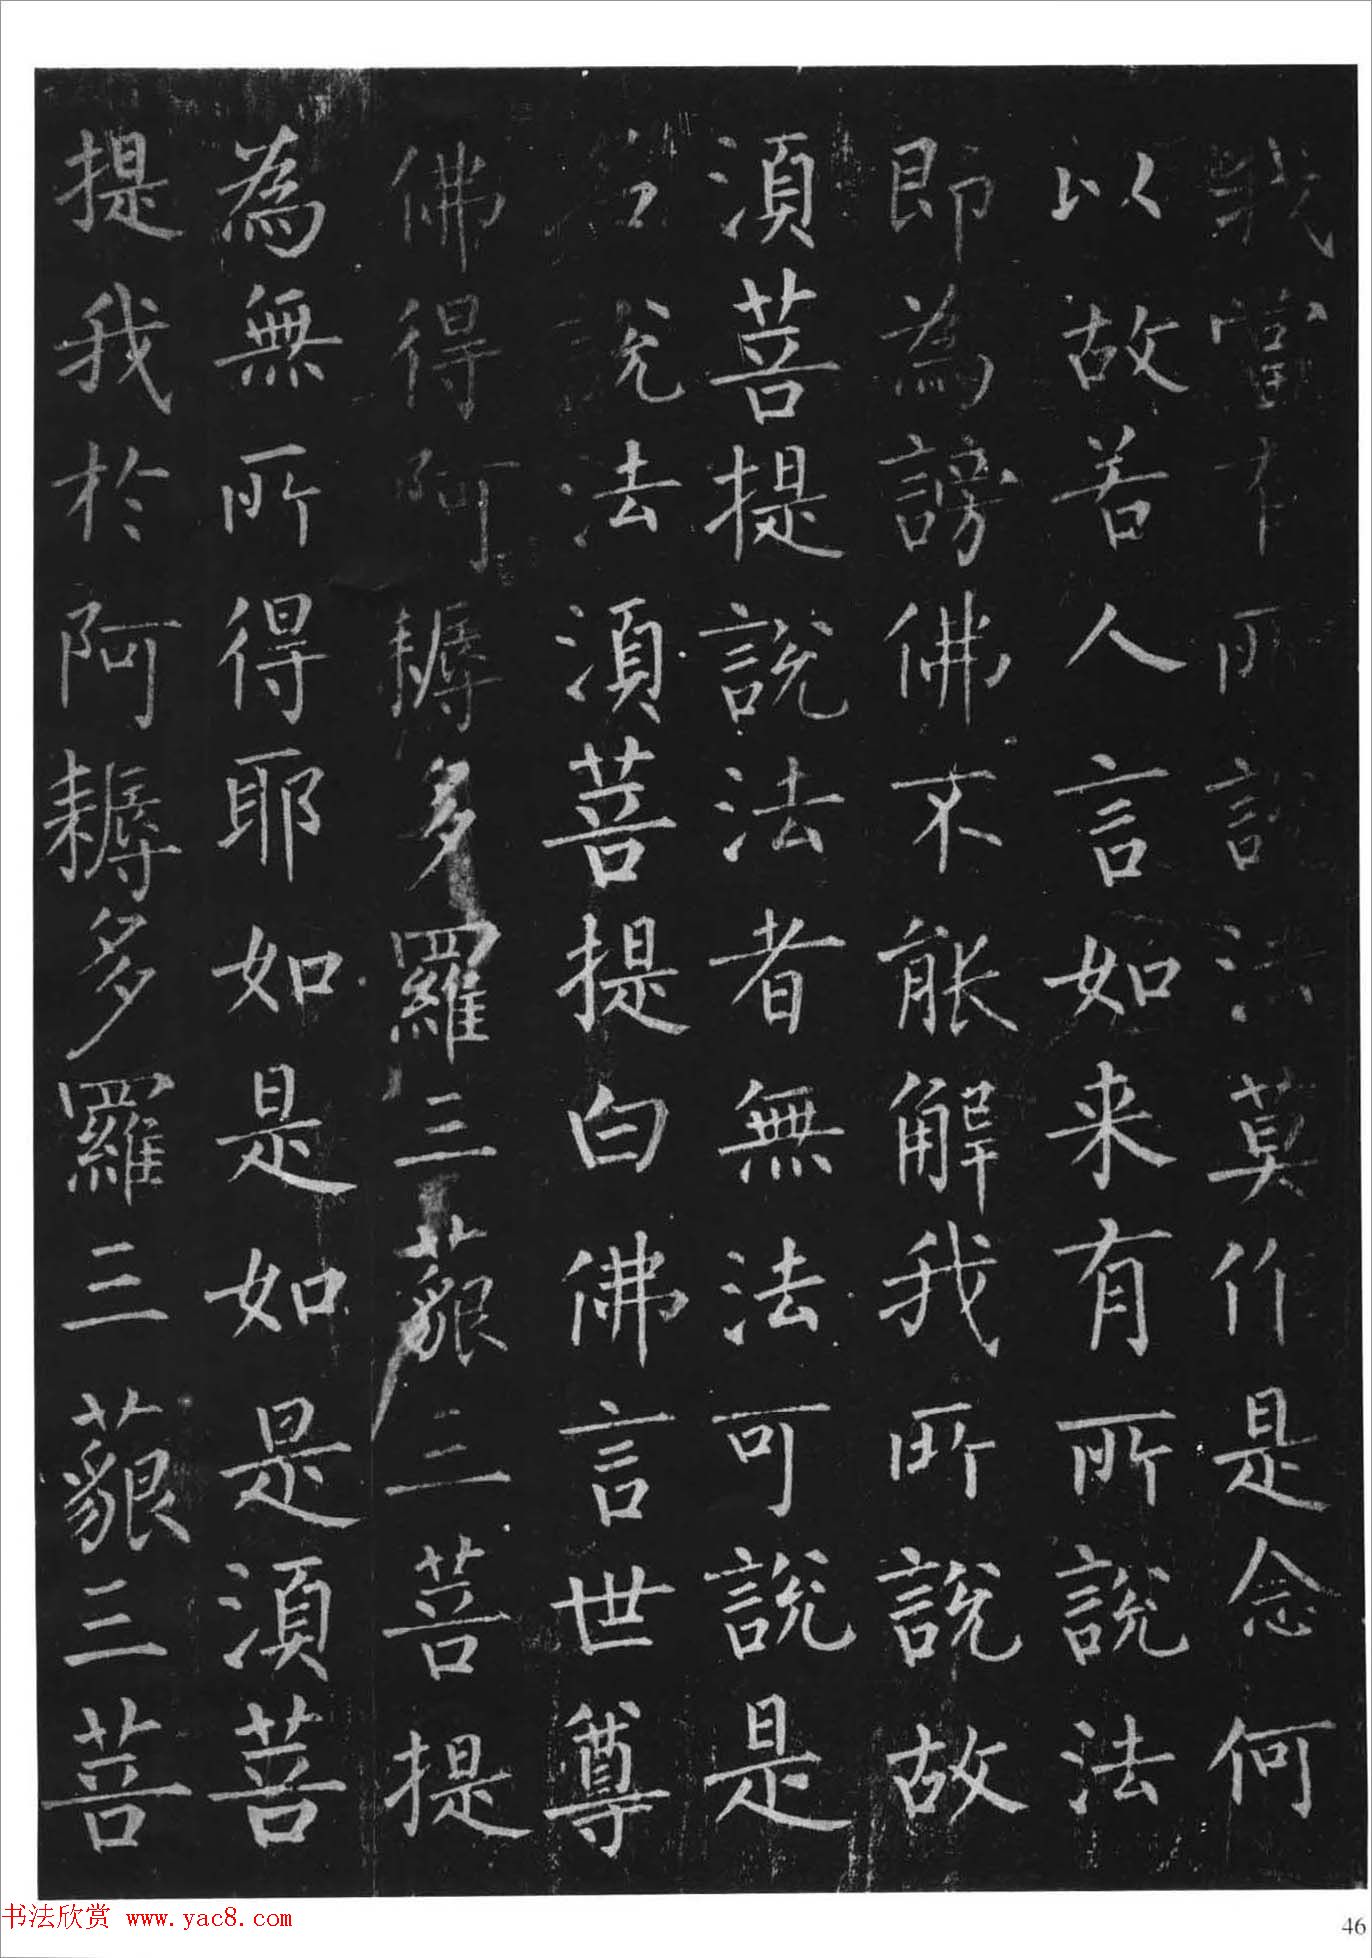 我當有所說法莫作是念何
以故若人言如来有所說法
即為謗佛不能解我所說故
湏菩提說法者無法可說是
名說法湏菩提白佛言世尊
佛得阿耨多羅三藐三菩提
為無所得耶如是如是湏菩
提我於阿耨多羅三藐三菩
书法欣赏 www.yac8.com
46